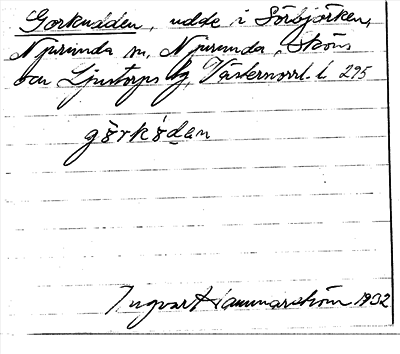 Gorkudden, udde i Sörbjörken,
Njurunda sn, Njurunda, Sköns
och Ljustorps tg, Västernorrl. l. 295
görkùdan
Ingvar Hammarström 1932